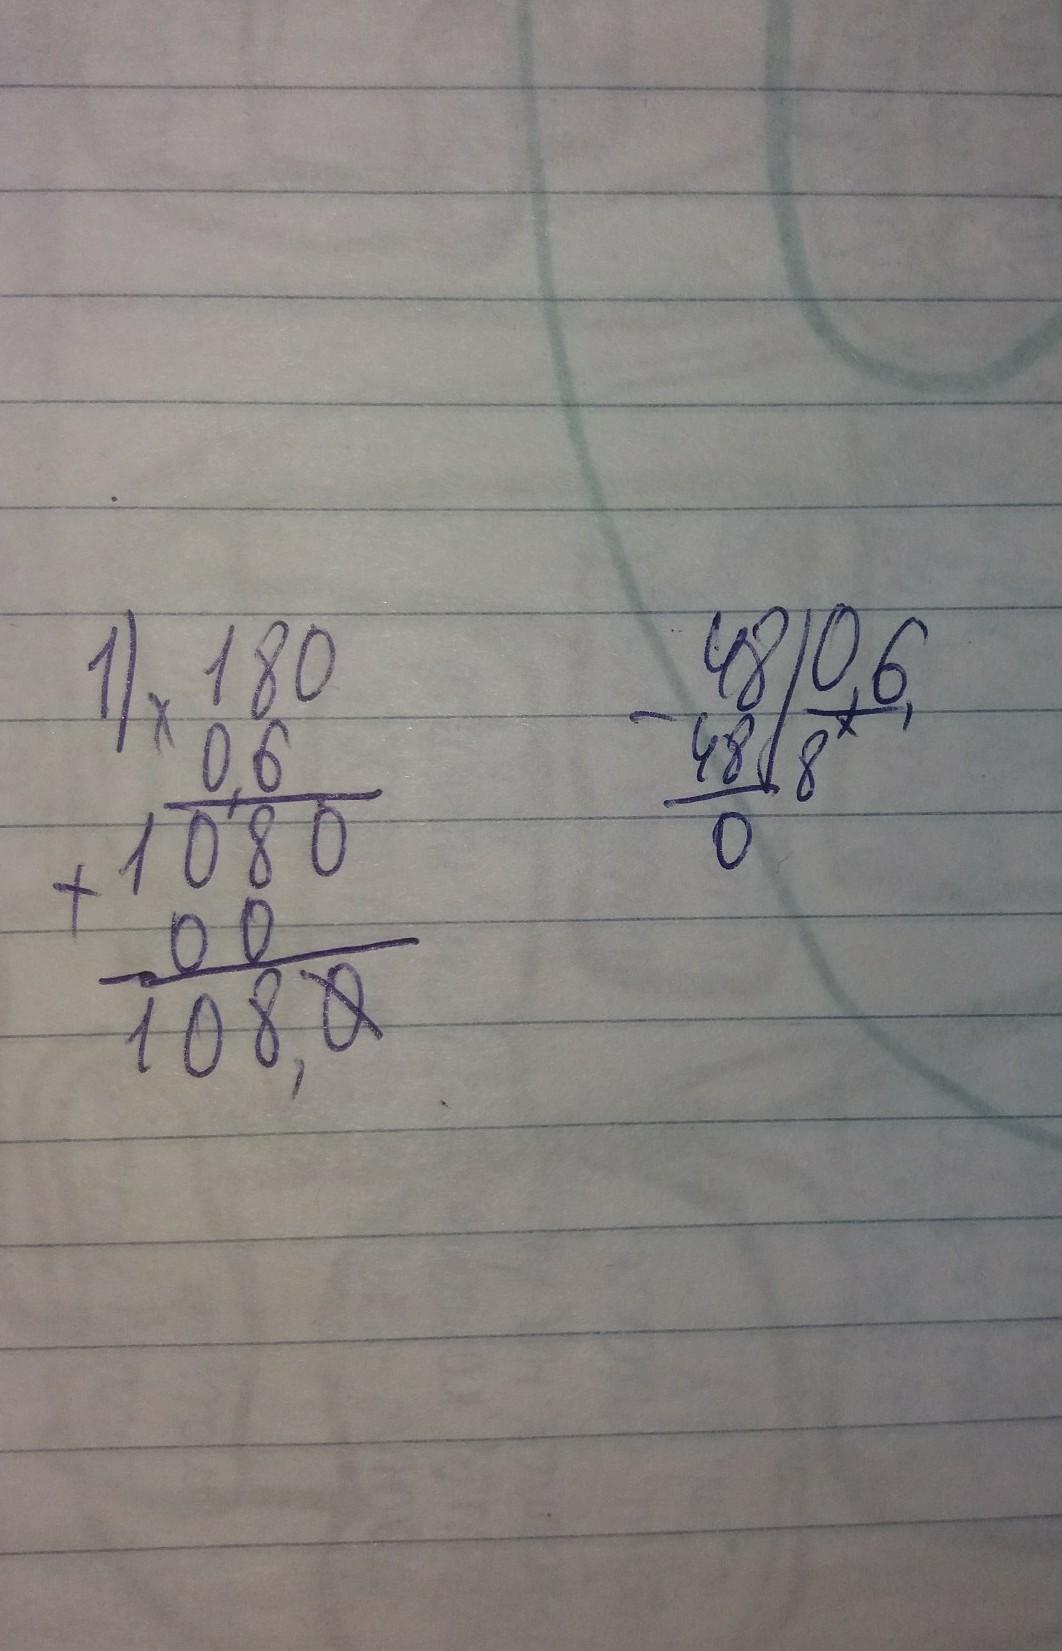 1) × 180
0,6
1080
+ 00
108,0
- 48 0,6
48 8
0